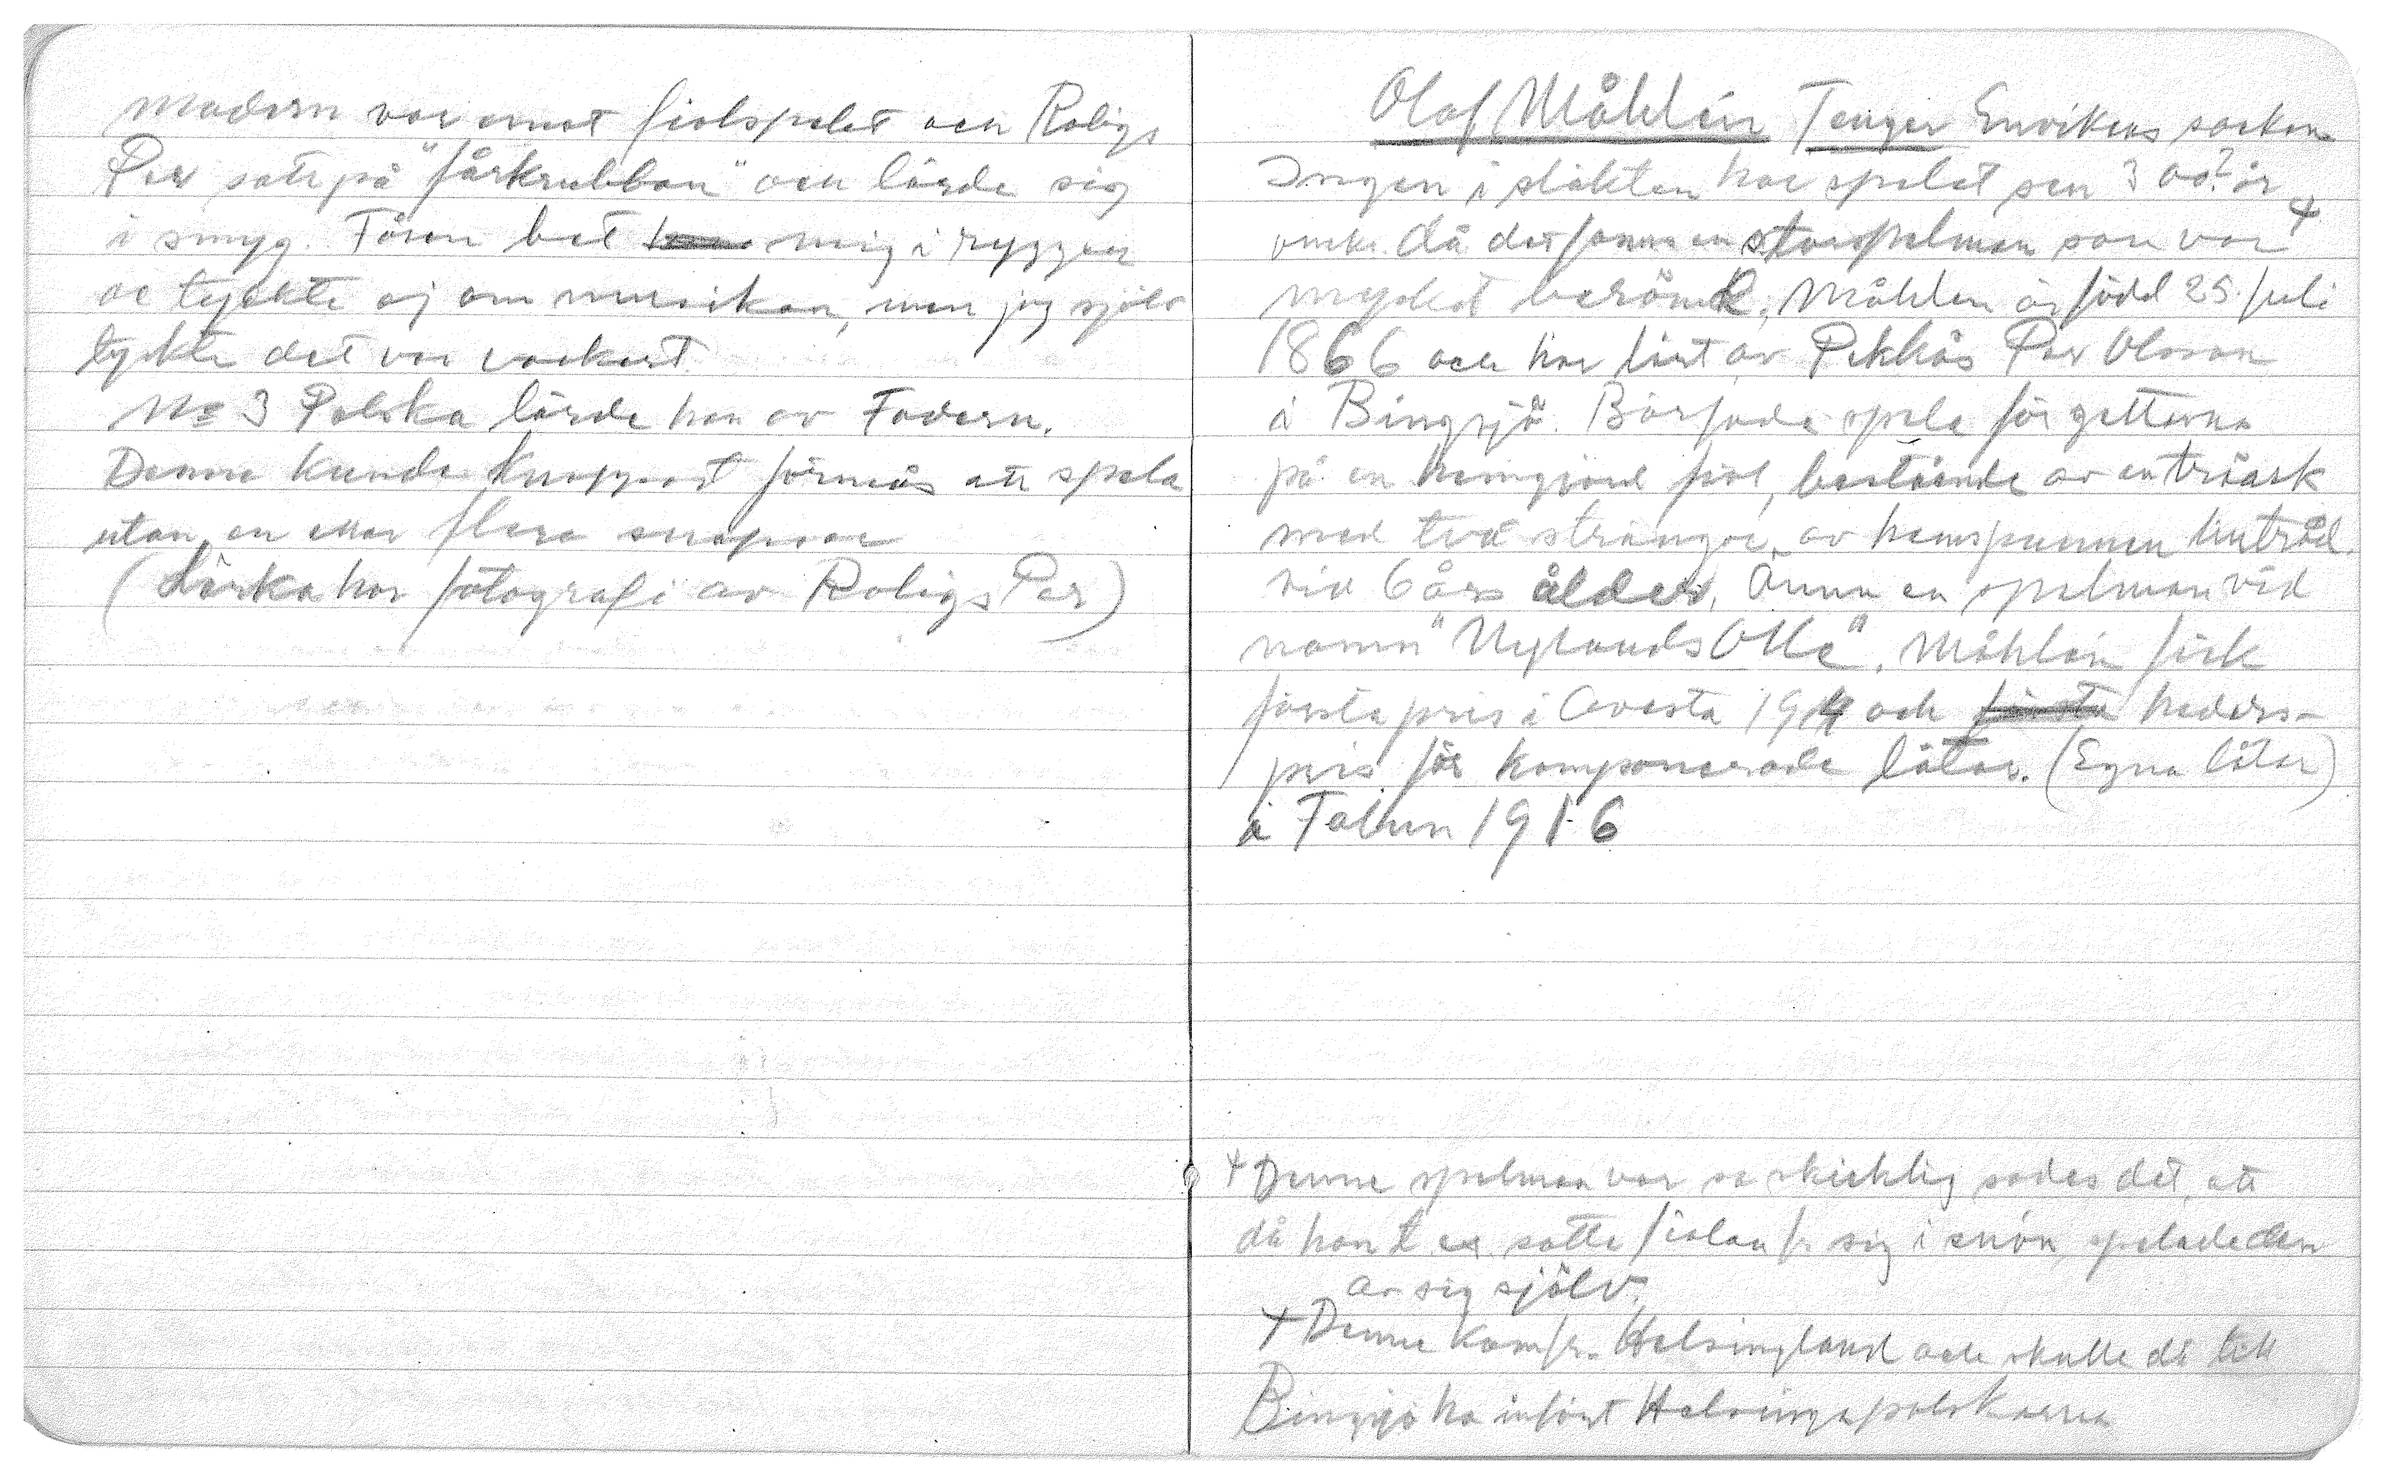 Modern var emot fiolspelet och Roligs
Per satt på "fårkrubban" och lärde sig
i smyg. Fåren bet mig i ryggen
ae tyckte ej om musikan, men jag själv
tyckte det var vackert.
No 3 Polska lärde han av Fadern.
Denne kunde knappast förmås att spela
utan en eller flera supar
(Lärka har fotografi av Roligs Per)
Olof Måhlén Tenger Envikens socken
Ingen i släkten har spelat sen 300? år
då det fanns en storspelman som var +
mycket berömd. Måhlen är född 25 juli
1866 och har lärt av Pekkos Per Olsson
i Bingsjö. Började spela för getterna
på en hemgjord fiol, bestående av en träask
med två strängar, av hemspunnen lintråd.
vid 6 års ålder. Ännu en spelman vid
namn "Nylands Olle". Måhlén fick
första pris i Avesta 1914 och första heders-
pris för komponerade låtar. (Egna låtar)
i Falun 1916
+ Denne spelman var så skicklig sades det, att
då han t.ex. satte fiolen fr sig i snön, spelade den
av sig själv.
+ Denne kom fr. Helsingland och skulle då till
Bingsjö ha infört Helsingepolskorna